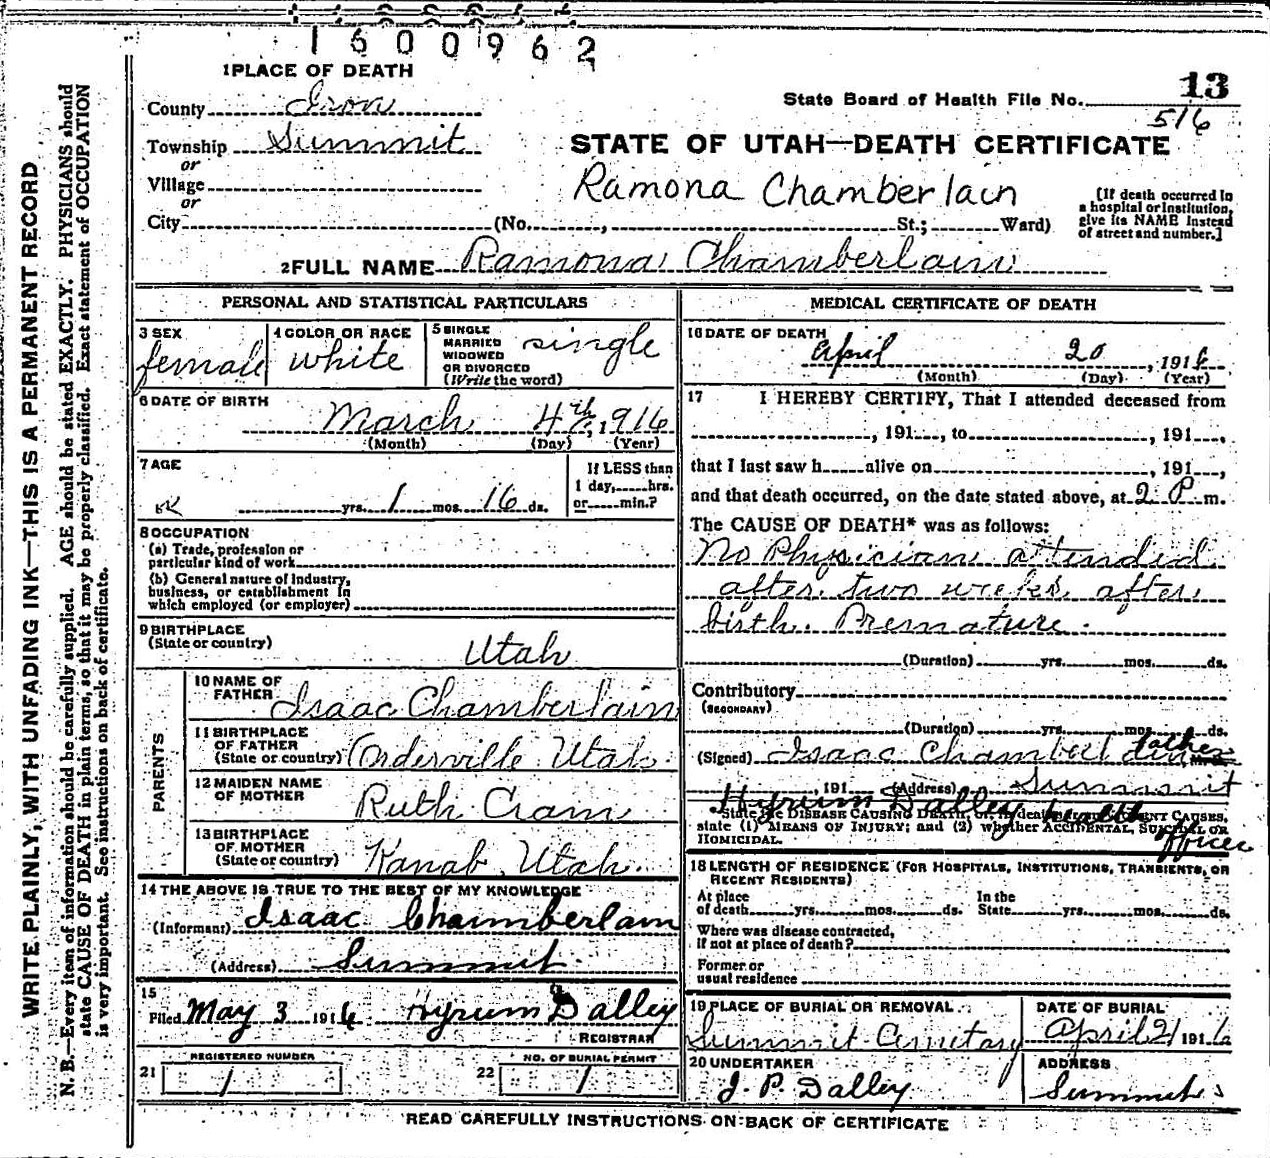 1600962
1 PLACE OF DEATH
13
State Board of Health File No.
516
County Iron
Township Summit
or
Village
or
City (No. , St.; Ward)
STATE OF UTAH—DEATH CERTIFICATE
Ramona Chamberlain
[If death occurred in
a hospital or institution,
give its NAME instead
of street and number.]
2 FULL NAME Ramona Chamberlain
PERSONAL AND STATISTICAL PARTICULARS
3 SEX
female
4 COLOR OR RACE
white
5 SINGLE
MARRIED
WIDOWED
OR DIVORCED
(Write the word)
single
6 DATE OF BIRTH
March 4th, 1916
(Month) (Day) (Year)
7 AGE
yrs. 1 mos. 16 ds.
If LESS than
1 day, hrs.
or min.?
8 OCCUPATION
(a) Trade, profession or
particular kind of work
(b) General nature of Industry,
business, or establishment in
which employed (or employer)
9 BIRTHPLACE
(State or country)
Utah
PARENTS
10 NAME OF
FATHER
Isaac Chamberlain
11 BIRTHPLACE
OF FATHER
(State or country) Orderville Utah
12 MAIDEN NAME
OF MOTHER
Ruth Cram
13 BIRTHPLACE
OF MOTHER
(State or country) Kanab Utah.
14 THE ABOVE IS TRUE TO THE BEST OF MY KNOWLEDGE
(Informant) Isaac Chamberlain
(Address) Summit
15
Filed May 3 1916 Hyrum Dalley
REGISTRAR
21
REGISTERED NUMBER
1
22
NO. OF BURIAL PERMIT
1
MEDICAL CERTIFICATE OF DEATH
16 DATE OF DEATH
April 20, 1916
(Month) (Day) (Year)
17 I HEREBY CERTIFY, That I attended deceased from
, 191 , to , 191 ,
that I last saw h alive on , 191 ,
and that death occurred, on the date stated above, at 2 P m.
The CAUSE OF DEATH* was as follows:
No Physician attended
after two weeks after
birth. Premature.
(Duration) yrs. mos. ds.
Contributory
(SECONDARY)
(Duration) yrs. mos. ds.
(Signed) Isaac Chamberlain father
, 191 (Address) Summit
Hyrum Dalley health officer
State the DISEASE CAUSING DEATH, or, in deaths from VIOLENT CAUSES,
state (1) MEANS OF INJURY; and (2) whether ACCIDENTAL, SUICIDAL OR
HOMICIDAL.
18 LENGTH OF RESIDENCE (FOR HOSPITALS, INSTITUTIONS, TRANSIENTS, OR
RECENT RESIDENTS)
At place
of death yrs. mos. ds.
In the
State yrs. mos. ds.
Where was disease contracted,
if not at place of death?
Former or
usual residence
19 PLACE OF BURIAL OR REMOVAL
Summit Cemetary
DATE OF BURIAL
April 21 1916
20 UNDERTAKER
J. P. Dalley
ADDRESS
Summit
READ CAREFULLY INSTRUCTIONS ON BACK OF CERTIFICATE
WRITE PLAINLY, WITH UNFADING INK—THIS IS A PERMANENT RECORD
N. B.—Every item of information should be carefully supplied. AGE should be stated EXACTLY. PHYSICIANS should
state CAUSE OF DEATH in plain terms, so that it may be properly classified. Exact statement of OCCUPATION
is very important. See instructions on back of certificate.